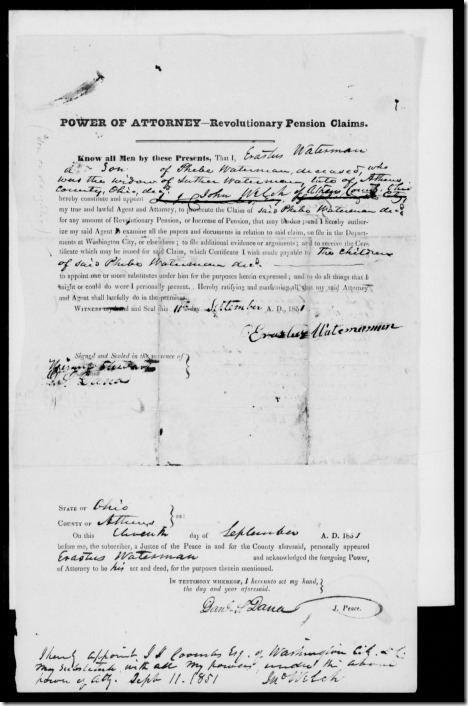 POWER OF ATTORNEY—Revolutionary Pension Claims.
Know all Men by these Presents, That I, Erastus Waterman
a Son of Phebe Waterman, deceased, who
was the widow of Luther Waterman, late of Athens
County, Ohio, decd
hereby constitute and appoint John Welch of Athens County, Ohio
my true and lawful Agent and Attorney, to prosecute the Claim of said Phebe Waterman decd
for any amount of Revolutionary Pension, or Increase of Pension, that may be due; and I hereby author-
ize my said Agent to examine all the papers and documents in relation to said claim, on file in the Depart-
ments at Washington City, or elsewhere; to file additional evidence or arguments; and to receive the Cer-
tificate which may be issued for said Claim, which Certificate I wish made payable to the children
of said Phebe Waterman decd.
to appoint one or more substitutes under him for the purposes herein expressed; and to do all things that I
might or could do were I personally present. Hereby ratifying and confirming all that my said Attorney
and Agent shall lawfully do in the premises.
WITNESS my hand and Seal this 11th day September A. D., 1851
Erastus Waterman
Signed and Sealed in the presence of
Dana
STATE OF Ohio
COUNTY OF Athens } ss:
On this Eleventh day of September A. D. 1851
before me, the subscriber, a Justice of the Peace in and for the County aforesaid, personally appeared
Erastus Waterman and acknowledged the foregoing Power,
of Attorney to be his act and deed, for the purposes therein mentioned.
IN TESTIMONY WHEREOF, I hereunto set my hand,
the day and year aforesaid.
Danl S Dana J. Peace.
I hereby appoint J J Coombs Esq. of Washington City, D.C.
my substitute, with all my powers, under the above
power of Atty. Sept 11. 1851 Jno Welch